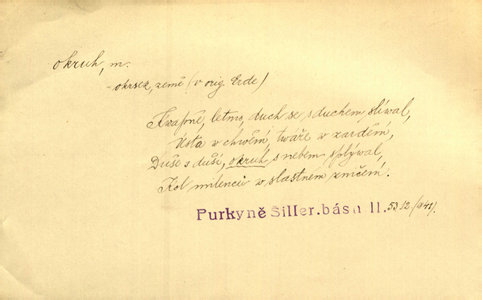 okruh, m.
- okrsek, země (v orig. Erde)
Kvapně, letmo, duch se s duchem slíval,
Ústa v chvění, tváře v zardění,
Duše s duší, okruh s nebem splýval,
Kol milenců v slastném zničení.
Purkyně Siller.básn II. 53 12./1841/.